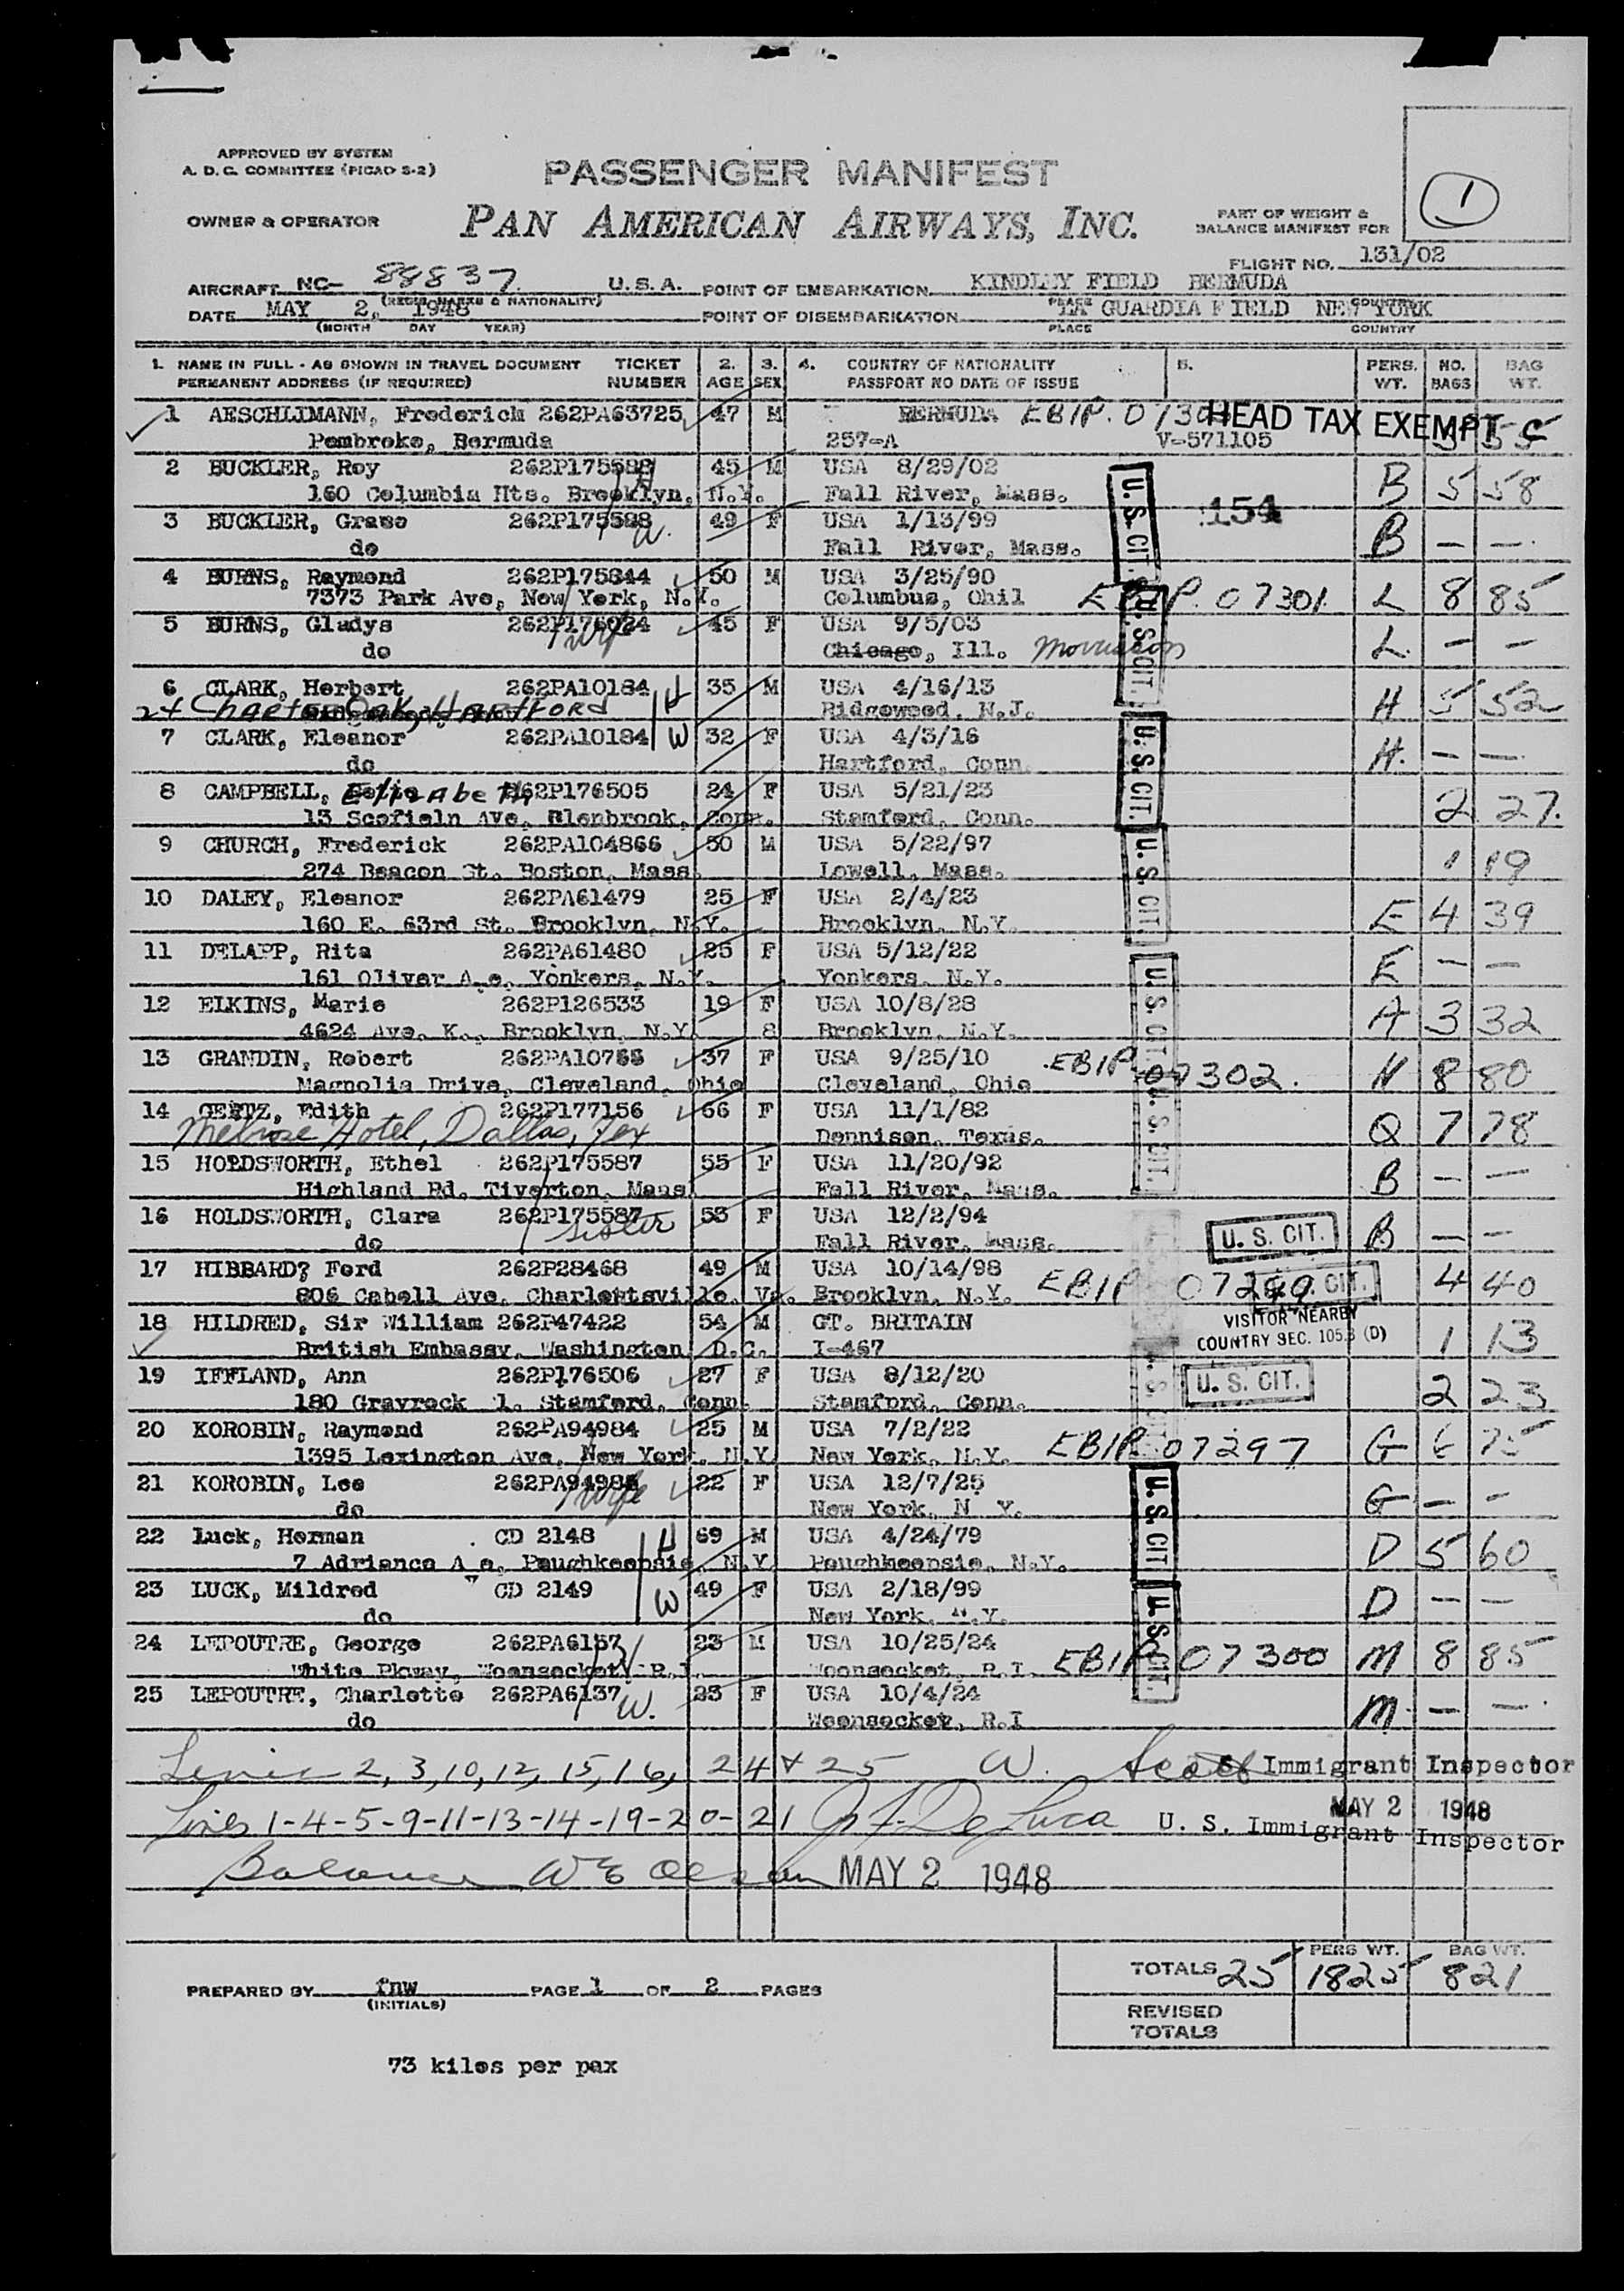 APPROVED BY SYSTEM
A. D. C. COMMITTEE (PICAO S-2)
PASSENGER MANIFEST
1
OWNER & OPERATOR
PAN AMERICAN AIRWAYS, INC.
PART OF WEIGHT &
BALANCE MANIFEST FOR
FLIGHT NO. 131/02
AIRCRAFT NC- 88837 U.S.A. POINT OF EMBARKATION KINDLEY FIELD BERMUDA
(REGIS. MARKS & NATIONALITY) PLACE COUNTRY
DATE MAY 2, 1948 POINT OF DISEMBARKATION LA GUARDIA FIELD NEW YORK
(MONTH DAY YEAR) PLACE COUNTRY
1. NAME IN FULL - AS SHOWN IN TRAVEL DOCUMENT TICKET 2. 3. 4. COUNTRY OF NATIONALITY 5. PERS. NO. BAG
PERMANENT ADDRESS (IF REQUIRED) NUMBER AGE SEX PASSPORT NO DATE OF ISSUE WT. BAGS WT.
1 AESCHLIMANN, Frederick 262PA63725 47 M BERMUDA EBIP. HEAD TAX EXEMPT C
Pembroke, Bermuda 257-A V-571105
2 BUCKLER, Roy 262P175588 H 45 M USA 8/29/02 B 5 58
160 Columbia Hts. Brooklyn, N.Y. Fall River, Mass. U.S. CIT. 154
3 BUCKLER, Grace 262P175588 W. 49 F USA 1/13/99 B - -
do Fall River, Mass.
4 BURNS, Raymond 262P175844 50 M USA 3/25/90 L 8 85
7373 Park Ave, New York, N.Y. Columbus, Ohil EBIP. 07301 U.S. CIT.
5 BURNS, Gladys 262P176024 wife 45 F USA 9/5/03 L. - -
do Chicago, Ill. Morrison
6 CLARK, Herbert 262PA10184 H 35 M USA 4/16/13 H 5 52
24 Charter Oak, Hartford Ridgewood, N.J.
7 CLARK, Eleanor 262PA10184 W 32 F USA 4/3/16 U.S. CIT. H. - -
do Hartford, Conn.
8 CAMPBELL, Elizabeth 262P176505 24 F USA 5/21/23 2 27.
13 Scofieln Ave, Glenbrook, Conn. Stamford, Conn.
9 CHURCH, Frederick 262PA104866 50 M USA 5/22/97 U.S. CIT. 1 19
274 Beacon St. Boston, Mass. Lowell, Mass.
10 DALEY, Eleanor 262PA61479 25 F USA 2/4/23 E 4 39
160 E. 63rd St. Brooklyn, N.Y. Brooklyn, N.Y.
11 DELAPP, Rita 262PA61480 25 F USA 5/12/22 E - -
161 Oliver A e, Yonkers, N.Y. Yonkers, N.Y.
12 ELKINS, Marie 262P126533 19 F USA 10/8/28 U.S. CIT. A 3 32
4624 Ave. K., Brooklyn, N.Y. 8 Brooklyn, N.Y.
13 GRANDIN, Robert 37 F USA 9/25/10 EBIP 07302. N 8 80
Magnolia Drive, Cleveland, Ohio Cleveland, Ohio
14 GERTZ, Edith 262P177156 66 F USA 11/1/82 U.S. CIT. Q 7 78
Melrose Hotel, Dallas, Tex Dennison, Texas.
15 HOLDSWORTH, Ethel 262P175587 55 F USA 11/20/92 B - -
Highland Rd. Tiverton, Mass. Fall River, Mass.
16 HOLDSWORTH, Clara 262P175587 sister 53 F USA 12/2/94 U. S. CIT. B - -
do Fall River, Mass.
17 HIBBARD? Ford 262P28468 49 M USA 10/14/98 EBIP 07299 CIT. 4 40
806 Cabell Ave, Charlottsville, Va. Brooklyn, N.Y.
18 HILDRED, Sir William 262P47422 54 M GT. BRITAIN VISITOR NEARBY 1 13
British Embassy, Washington, D.C. I-467 COUNTRY SEC. 105.3 (D)
19 IFFLAND, Ann 262P176506 27 F USA 8/12/20 U. S. CIT. 2 23
180 Grayrock l. Stamford, Conn. Stamford, Conn.
20 KOROBIN, Raymond 262PA94984 25 M USA 7/2/22 EBIP 07297 G 6 75
1395 Lexington Ave, New York, N.Y. New York, N.Y.
21 KOROBIN, Lee 262PA94985 wife 22 F USA 12/7/25 U.S. CIT. G - -
do New York, N Y.
22 Luck, Herman CD 2148 H 69 M USA 4/24/79 D 5 60
7 Adriance A e, Poughkeepsie, N.Y. Poughkeepsie, N.Y.
23 LUCK, Mildred CD 2149 W 49 F USA 2/18/99 D - -
do New York, N.Y. U.S. CIT.
24 LEPOUTRE, George 262PA6137 H 23 M USA 10/25/24 EBIP 07300 M 8 85
White Pkway, Woonsocket, R.I. Woonsocket, R.I.
25 LEPOUTRE, Charlotte 262PA6137 W. 23 F USA 10/4/24 M - -
do Woonsocket, R.I
Lines 2, 3, 10, 12, 15, 16, 24 & 25 W. Scott Immigrant Inspector
MAY 2 1948
Lines 1-4-5-9-11-13-14-19-20-21 J. F. DeLuca U. S. Immigrant Inspector
Balance W E Olson MAY 2 1948
PERS WT. BAG WT.
TOTALS 25 1825 821
PREPARED BY fnw PAGE 1 OF 2 PAGES
(INITIALS)
REVISED
TOTALS
73 kilos per pax